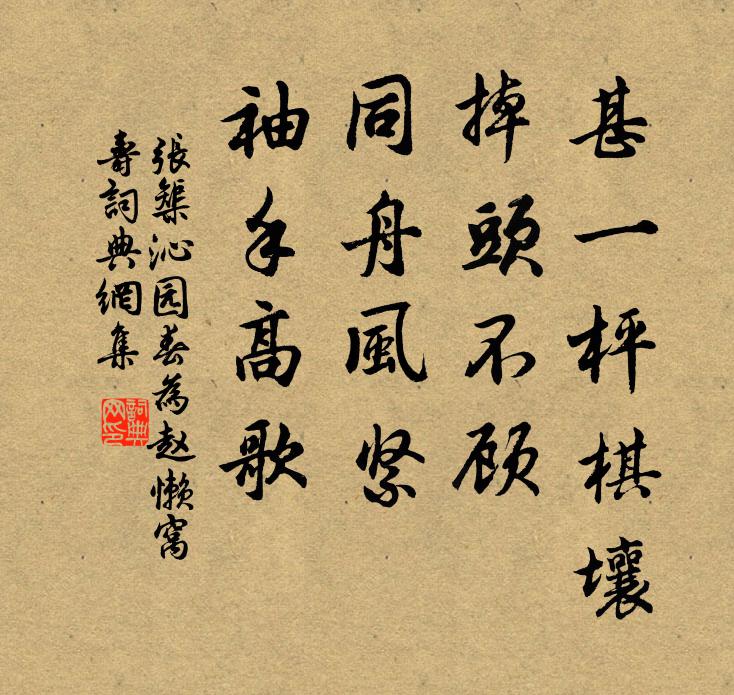 甚一枰棋壞
掉頭不顧
同舟風緊
袖手高歌
張榘沁园春為赵懶窩
壽詞典網集
詞典
网印